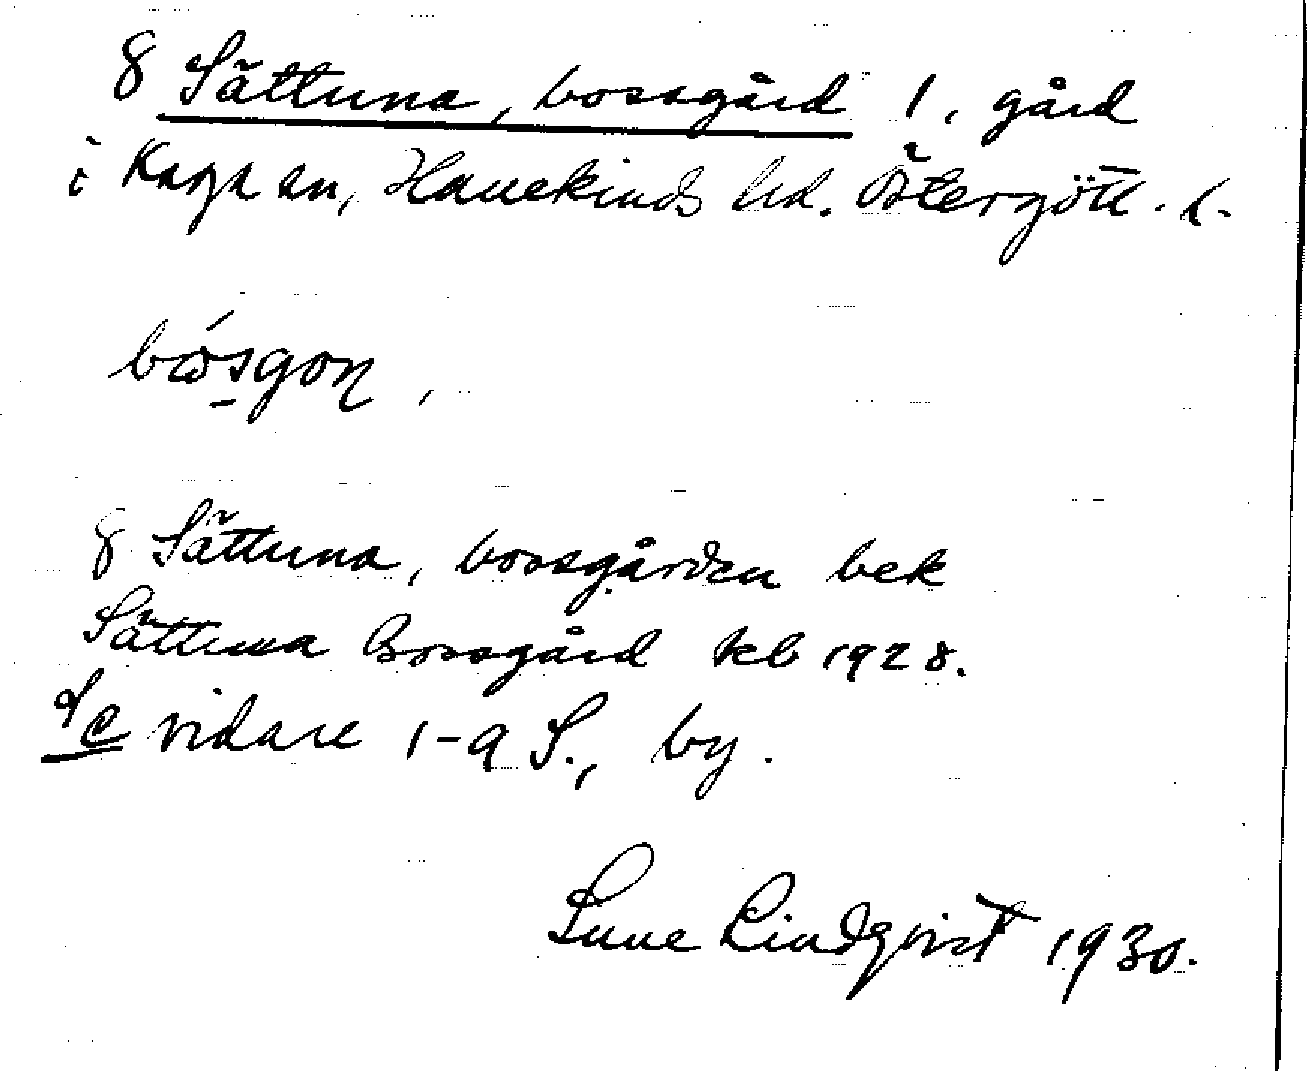 8 Sättuna, bossgård 1, gård
i Kaga sn, Hanekinds hd. Östergötl. l.
8 Sättuna, bossgården bek
Sättuna Bossgård kb 1928.
Se vidare 1-9 S., by.
Sune Lindqvist 1930.